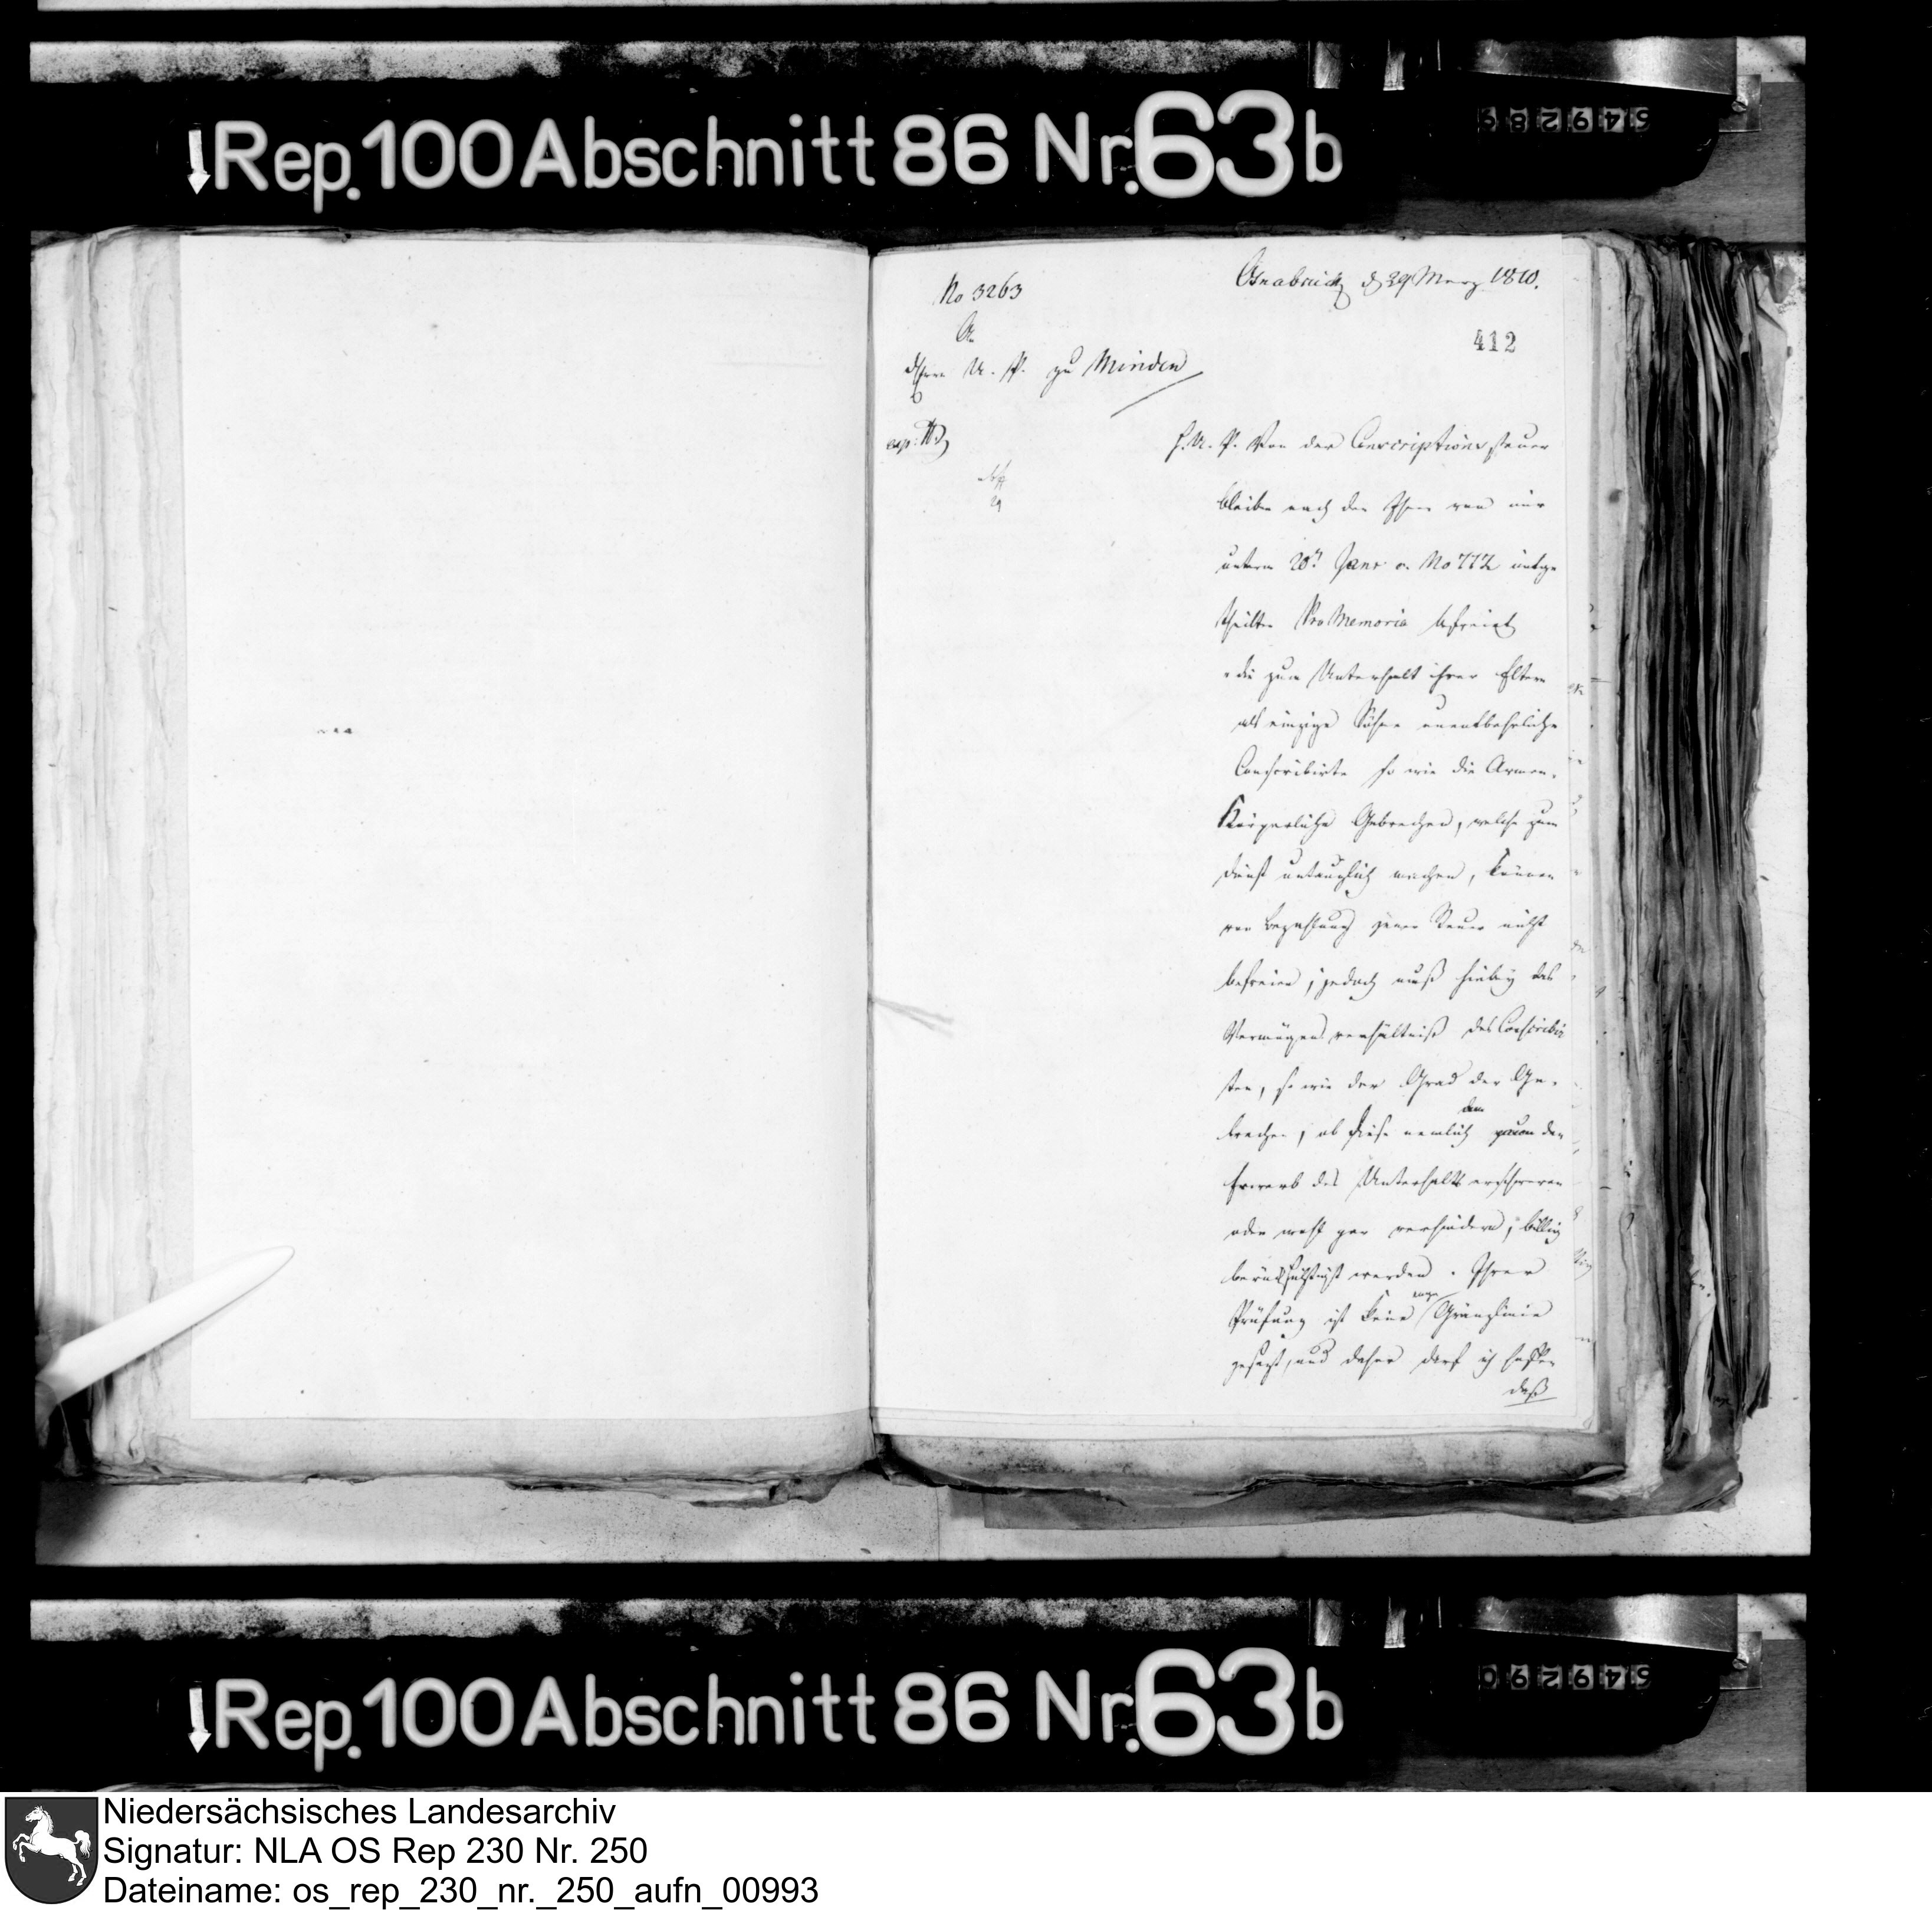 Rep. 100 Abschnitt 86 Nr. 63b
549289
No 3263
Osnabrück d 29 Merz 1810.
An
412
d Herrn U. P. zu Minden
exp:
29
H. U. P. Von der Conscriptions steuer
bleiben nach den Ihnen von mir
unterm 20t Janr c. No 772 mitge
theilten ProMemoria befreiet
"die zum Unterhalt ihrer Eltern
als einzige Söhne unentbehrliche
Conscribirte so wie die Armen.
Körperliche Gebrechen, welche zum
Dienst untauglich machen, können
von Bezahlung jener Steuer nicht
befreien; jedoch muß hiebey das
Vermögens verhältniß des Conscribir
ten, so wie der Grad der Ge-
brechen, ob diese nemlich dem den
Erwerb des Unterhalts erschweren
oder wohl gar verhindern, billig
berücksichtigt werden. Ihrer
Prüfung ist keine enge Gränzlinie
gesezt, und daher darf ich hoffen
daß
Rep. 100 Abschnitt 86 Nr. 63b
549290
Niedersächsisches Landesarchiv
Signatur: NLA OS Rep 230 Nr. 250
Dateiname: os_rep_230_nr._250_aufn_00993